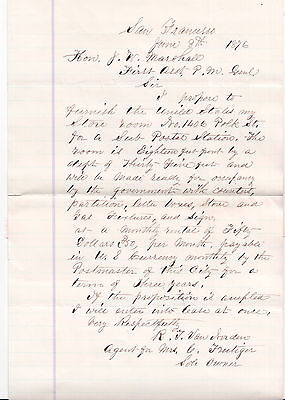 San Francisco
June 9th 1876
Hon. J. W. Marshall
First Asst P. M. Genl.
Sir
I propose to
furnish the United States my
Store room No. 1406 Polk St,
for a Sub Postal Station. The
room is Eighteen feet front by a
depth of Thirty feet and
will be made ready for occupancy
by the government with counters,
partition, Letter Boxes, Stove and
Gas Fixtures, and Sign,
at a monthly rental of Fifty
Dollars $50, per month, payable
in U. S Currency monthly by the
Postmaster of this City for a
term of Three years.
If the proposition is accepted
I will enter into lease at once.
Very Respectfully
R. J. Van
Agent for Mrs. C.
Sole Owner